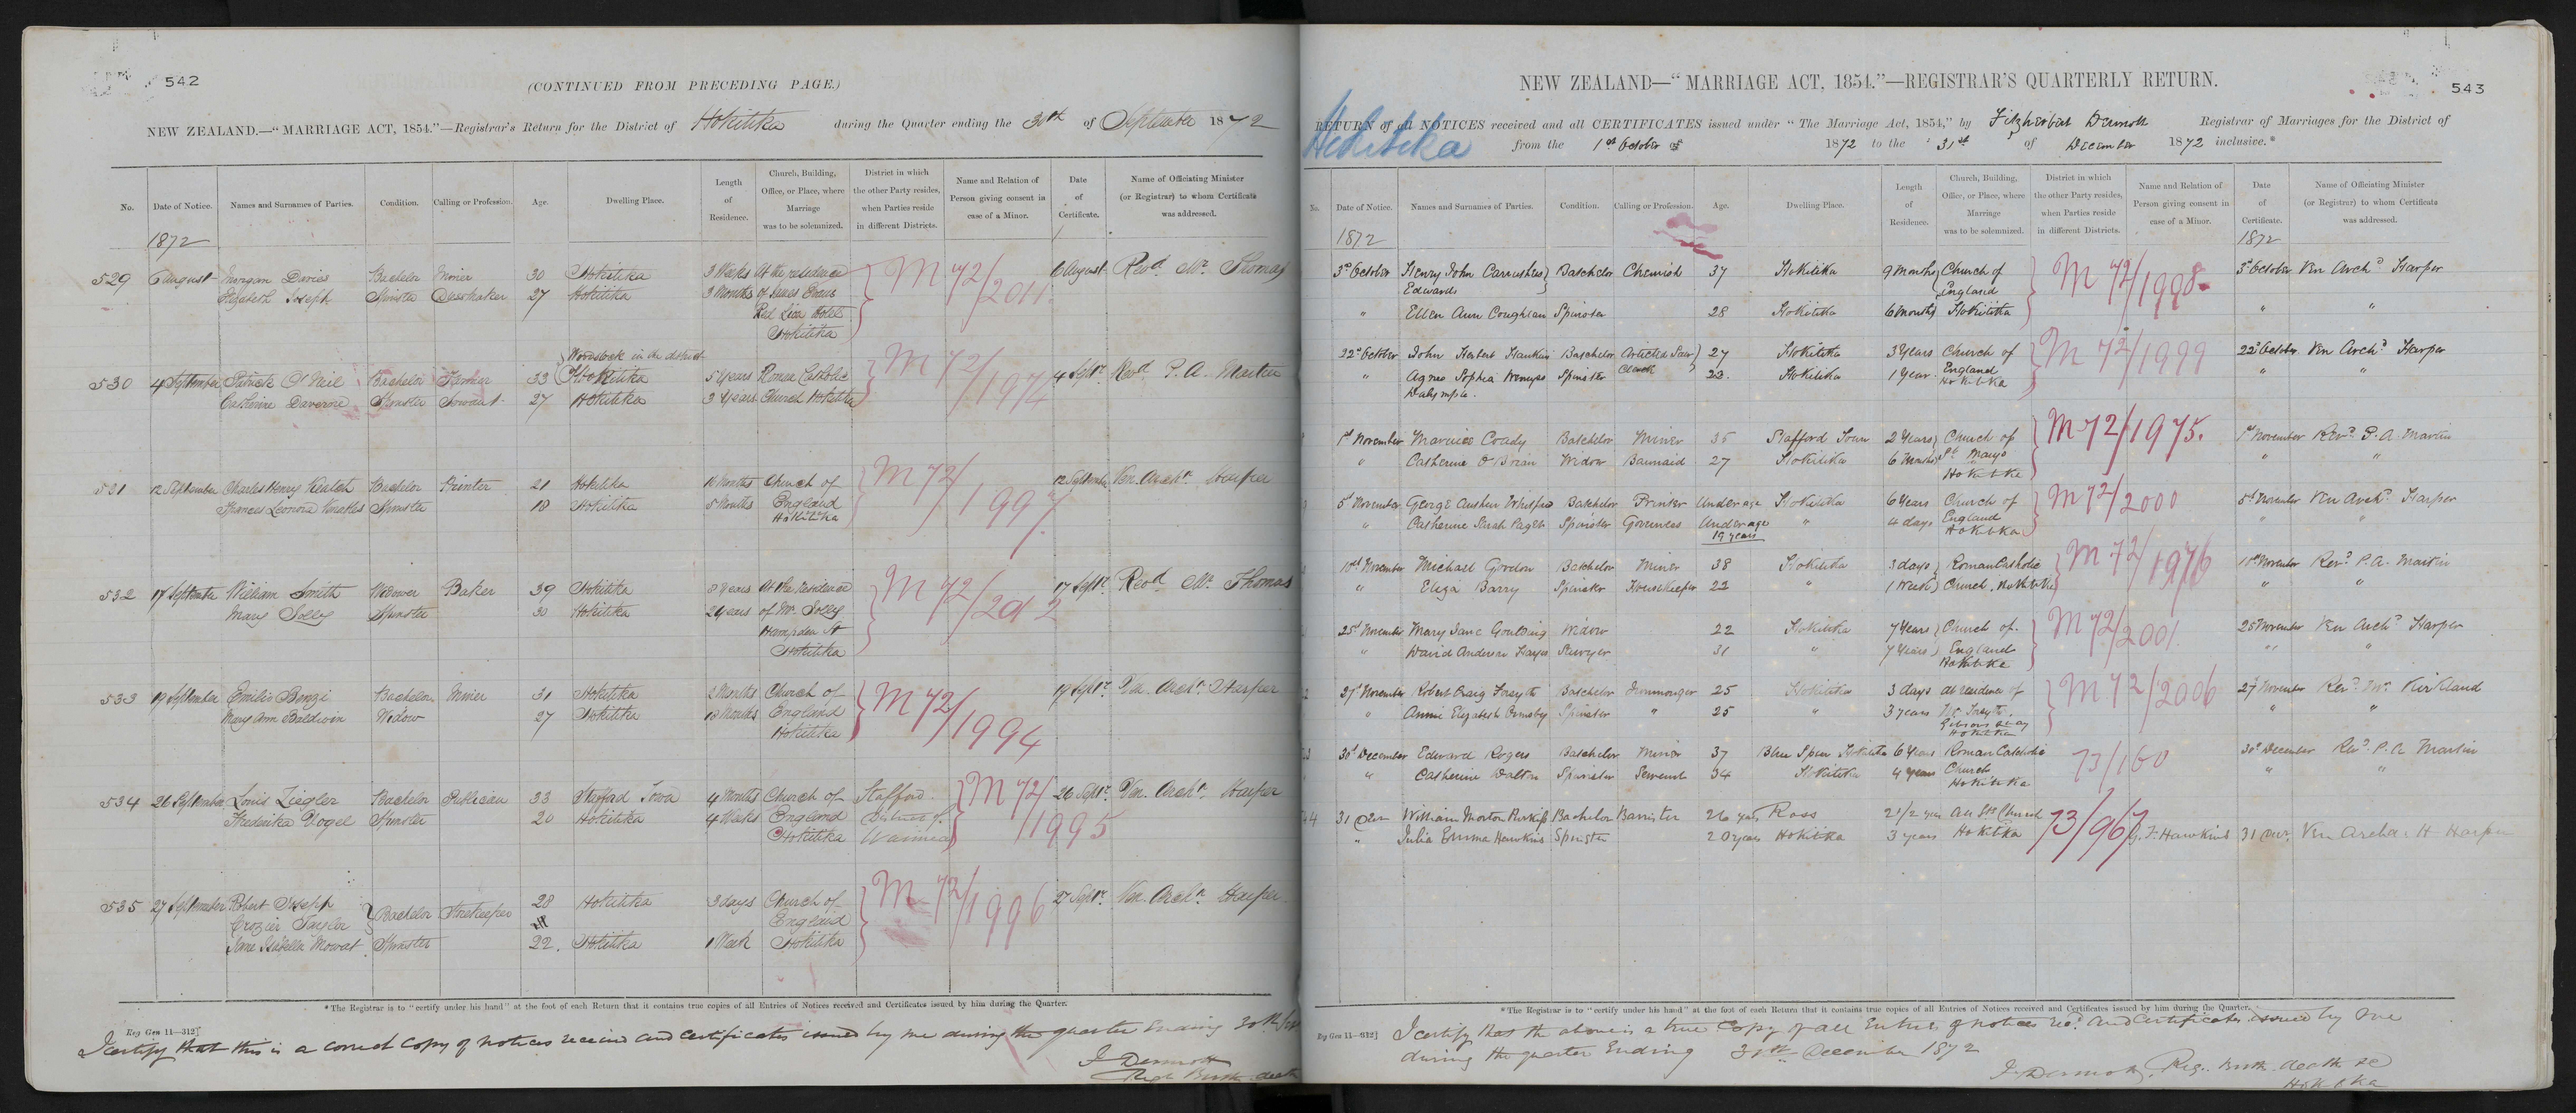 542
(CONTINUED FROM PRECEDING PAGE.)
NEW ZEALAND.—"MARRIAGE ACT, 1854."—Registrar's Return for the District of Hokitika during the Quarter ending the 30th of September 1872
No. Date of Notice. Names and Surnames of Parties. Condition. Calling or Profession. Age. Dwelling Place. Length of Residence. Church, Building, Office, or Place, where Marriage was to be solemnized. District in which the other Party resides, when Parties reside in different Districts. Name and Relation of Person giving consent in case of a Minor. Date of Certificate. Name of Officiating Minister (or Registrar) to whom Certificate was addressed.
1872
529 6 August Morgan Davies Bachelor Miner 30 Hokitika 3 Weeks At the residence M 72/2011 6 August Revd. Mr. Thomas
Elizabeth Joseph Spinster Dressmaker 27 Hokitika 3 Months of James Evans
Red Lion Hotel
Hokitika
Woodstock in the district
530 4 September Patrick O'Neil Bachelor Farmer 33 Hokitika 5 Years Roman Catholic M 72/1974 4 Septr. Revd. P. A. Martin
Catherine Davoren Spinster Servant 27 Hokitika 3 Years Church Hokitika
531 12 September Charles Henry Keatch Bachelor Printer 21 Hokitika Months Church of M 72/1997 12 September Ven. Archn. Harper
Frances Leonora Spinster 18 Hokitika 5 Months England
Hokitika
532 17 September William Smith Widower Baker 39 Hokitika 8 Years At the residence M 72/2012 17 Septr. Revd. Mr. Thomas
Mary Solly Spinster 30 Hokitika 2 Years of Mr. Solly
Hampden St
Hokitika
533 19 September Emilio Bonzi Bachelor Miner 31 Hokitika 2 Months Church of M 72/1994 19 Septr. Ven. Archn. Harper
Mary Ann Baldwin Widow 27 Hokitika 18 Months England
Hokitika
534 26 September Louis Ziegler Bachelor Publican 33 Stafford Town 4 Months Church of Stafford M 72/1995 26 Septr. Ven. Archn. Harper
Frederika Vogel Spinster 20 Hokitika 4 Weeks England District of
Hokitika Waimea
535 27 September Robert Joseph Bachelor Storekeeper 28 Hokitika 3 days Church of M 72/1996 27 Septr. Ven. Archn. Harper
Crozier Taylor England
Jane Isabella Mowat Spinster 22. Hokitika 1 Week Hokitika
*The Registrar is to "certify under his hand" at the foot of each Return that it contains true copies of all Entries of Notices received and Certificates issued by him during the Quarter.
Reg Gen 11—312]
I certify that this is a correct copy of notices received and certificates issued by me during the quarter ending 30th
F Dermott
Regr Birth death
543
NEW ZEALAND—"MARRIAGE ACT, 1854."—REGISTRAR'S QUARTERLY RETURN.
Hokitika
RETURN of all NOTICES received and all CERTIFICATES issued under "The Marriage Act, 1854," by Fitzherbert Dermott Registrar of Marriages for the District of
from the 1st October 1872 to the 31st of December 1872 inclusive.*
No. Date of Notice. Names and Surnames of Parties. Condition. Calling or Profession. Age. Dwelling Place. Length of Residence. Church, Building, Office, or Place, where Marriage was to be solemnized. District in which the other Party resides, when Parties reside in different Districts. Name and Relation of Person giving consent in case of a Minor. Date of Certificate. Name of Officiating Minister (or Registrar) to whom Certificate was addressed.
1872 1872
3d October Henry John Carruthers Batchelor Chemist 37 Hokitika 9 Months Church of M 72/1998 3d October Ven Archd Harper
Edwards England
" Ellen Ann Coughlan Spinster 28 Hokitika 6 Months Hokitika " "
22d October John Herbert Hankins Batchelor Articled Law 27 Hokitika 3 Years Church of M 72/1999 22d October Ven Archd Harper
" Agnes Sophia Wemyss Spinster Clerk 23. Hokitika 1 Year England " "
Dalrymple. Hokitika
1st November Coady Batchelor Miner 35 Stafford Town 2 Years Church of M 72/1975. 1st November Revd. P. A. Martin
" Catherine O'Brian Widow Barmaid 27 Hokitika 6 Months St Marys " "
Hokitika
5th November George Austen Batchelor Printer Under age Hokitika 6 Years Church of M 72/2000 5th November Ven Archd. Harper
" Catherine Sarah Paget Spinster Governess Under age " 4 days England " "
19 years Hokitika
10th November Michael Gordon Batchelor Miner 38 Hokitika 3 days Roman Catholic M 72/1976 November Revd. P. A. Martin
" Eliza Barry Spinster Housekeeper 22 " 1 Week Church. Hokitika " "
25th November Mary Jane Goulding Widow 22 Hokitika 7 Years Church of M 72/2001 25 November Ven Archd Harper
" David Andrew Hayes Sawyer 31 " 7 Years England " "
Hokitika
27th November Robert Craig Forsyth Batchelor Ironmonger 25 Hokitika 3 days at residence of M 72/2006 27 November Revd. Mr. Kirkland
" Annie Elizabeth Ormsby Spinster " 25 " 3 years Mr Forsyth. " "
Gibsons quay
Hokitika
30th December Edward Rogers Batchelor Miner 37 Blue Spur Hokitika 6 Years Roman Catholic 73/160 30th December Revd. P. A Martin
" Catherine Dalton Spinster Servant 34 Hokitika 4 years Church " "
Hokitika
31 Decr William Morton Bachelor Barrister 26 years Ross 2 1/2 yrs All Sts Church 73/967 G. F. Hawkins 31 Decr. Ven Archd. H Harper
" Julia Emma Hawkins Spinster 20 years Hokitika 3 years Hokitika
*The Registrar is to "certify under his hand" at the foot of each Return that it contains true copies of all Entries of Notices received and Certificates issued by him during the Quarter.
Reg Gen 11—312]
I certify that the above is a true Copy of all Entries of notices recd. and Certificates issued by me
during the quarter Ending 31st December 1872
F. Dermott, Reg. Birth death &c
Hokitika